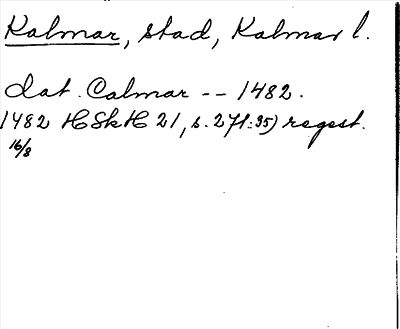 Kalmar, stad, Kalmar l.
dat. Calmar -- 1482.
1482 HSkH 21, s. 271:35) regest.
16/8